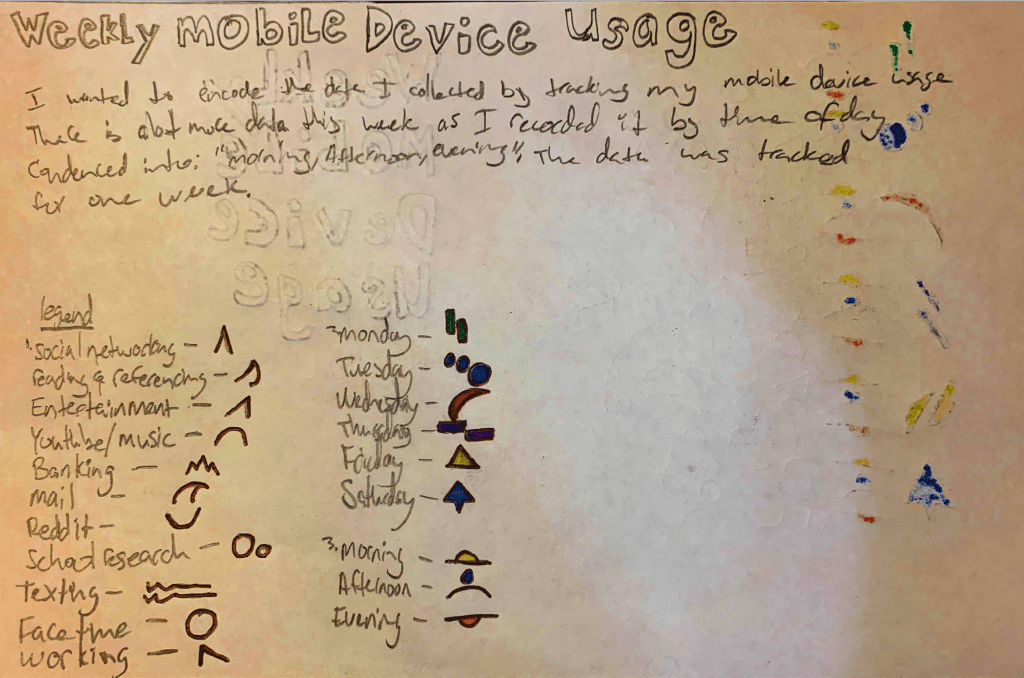 Weekly Mobile Device Usage
I wanted to encode the data I collected by tracking my mobile device usage
There is alot more data this week as I recorded it by time of day
Condenced into: "morning, Afternoon, evening". The data was tracked
for one week.
legend
1. Social networking -
reading & referencing -
Entertainment -
Youtube/music -
Banking -
mail -
Reddit -
School research -
Texting -
Facetime -
working -
2. monday -
Tuesday -
Wednesday -
Thursday -
Friday -
Saturday -
3. Morning -
Afternoon -
Evening -